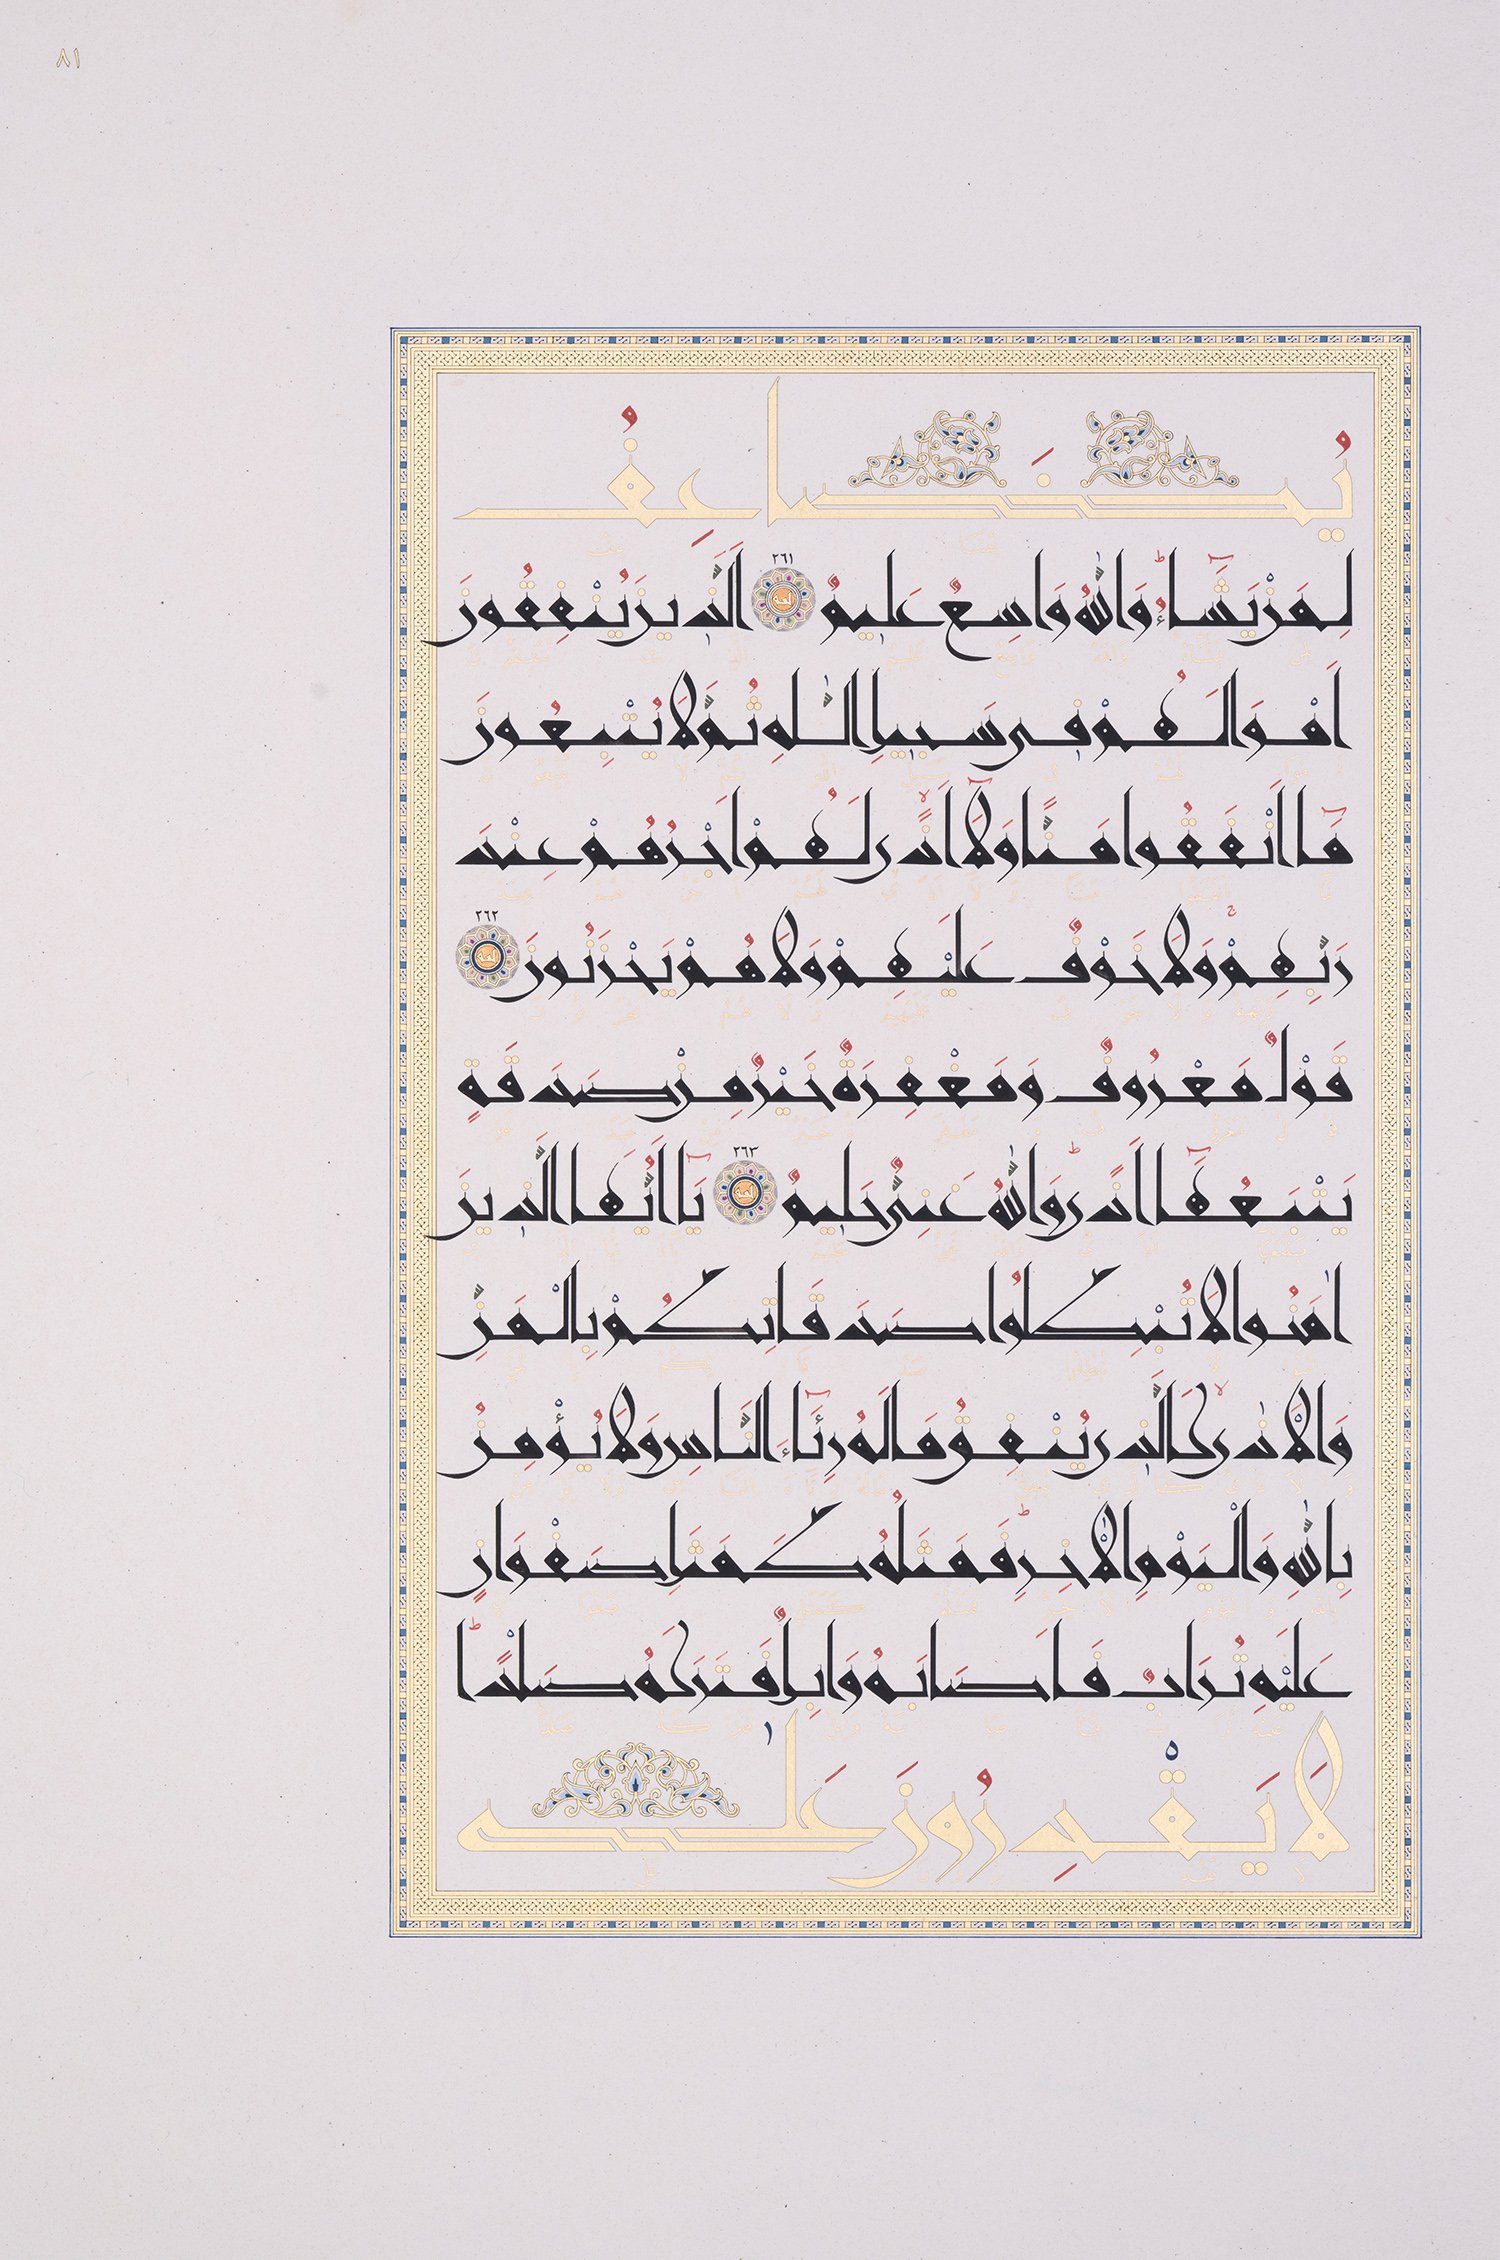 ٨١
يُضَاعِفُ
لِمَنْ يَشَاءُ وَاللّٰهُ وَاسِعٌ عَلِيمٌ ٢٦١ اَلَّذِينَ يُنْفِقُونَ
اَمْوَالَهُمْ فِي سَبِيلِ اللّٰهِ ثُمَّ لَا يُتْبِعُونَ
مَا اَنْفَقُوا مَنًّا وَلَا اَذًى لَهُمْ اَجْرُهُمْ عِنْدَ
رَبِّهِمْ وَلَا خَوْفٌ عَلَيْهِمْ وَلَا هُمْ يَحْزَنُونَ ٢٦٢
قَوْلٌ مَعْرُوفٌ وَمَغْفِرَةٌ خَيْرٌ مِنْ صَدَقَةٍ
يَتْبَعُهَا اَذًى وَاللّٰهُ غَنِيٌّ حَلِيمٌ ٢٦٣ يَا اَيُّهَا الَّذِينَ
اٰمَنُوا لَا تُبْطِلُوا صَدَقَاتِكُمْ بِالْمَنِّ
وَالْاَذٰى كَالَّذِي يُنْفِقُ مَالَهُ رِئَاءَ النَّاسِ وَلَا يُؤْمِنُ
بِاللّٰهِ وَالْيَوْمِ الْاٰخِرِ فَمَثَلُهُ كَمَثَلِ صَفْوَانٍ
عَلَيْهِ تُرَابٌ فَاَصَابَهُ وَابِلٌ فَتَرَكَهُ صَلْدًا
لَا يَقْدِرُونَ عَلٰى